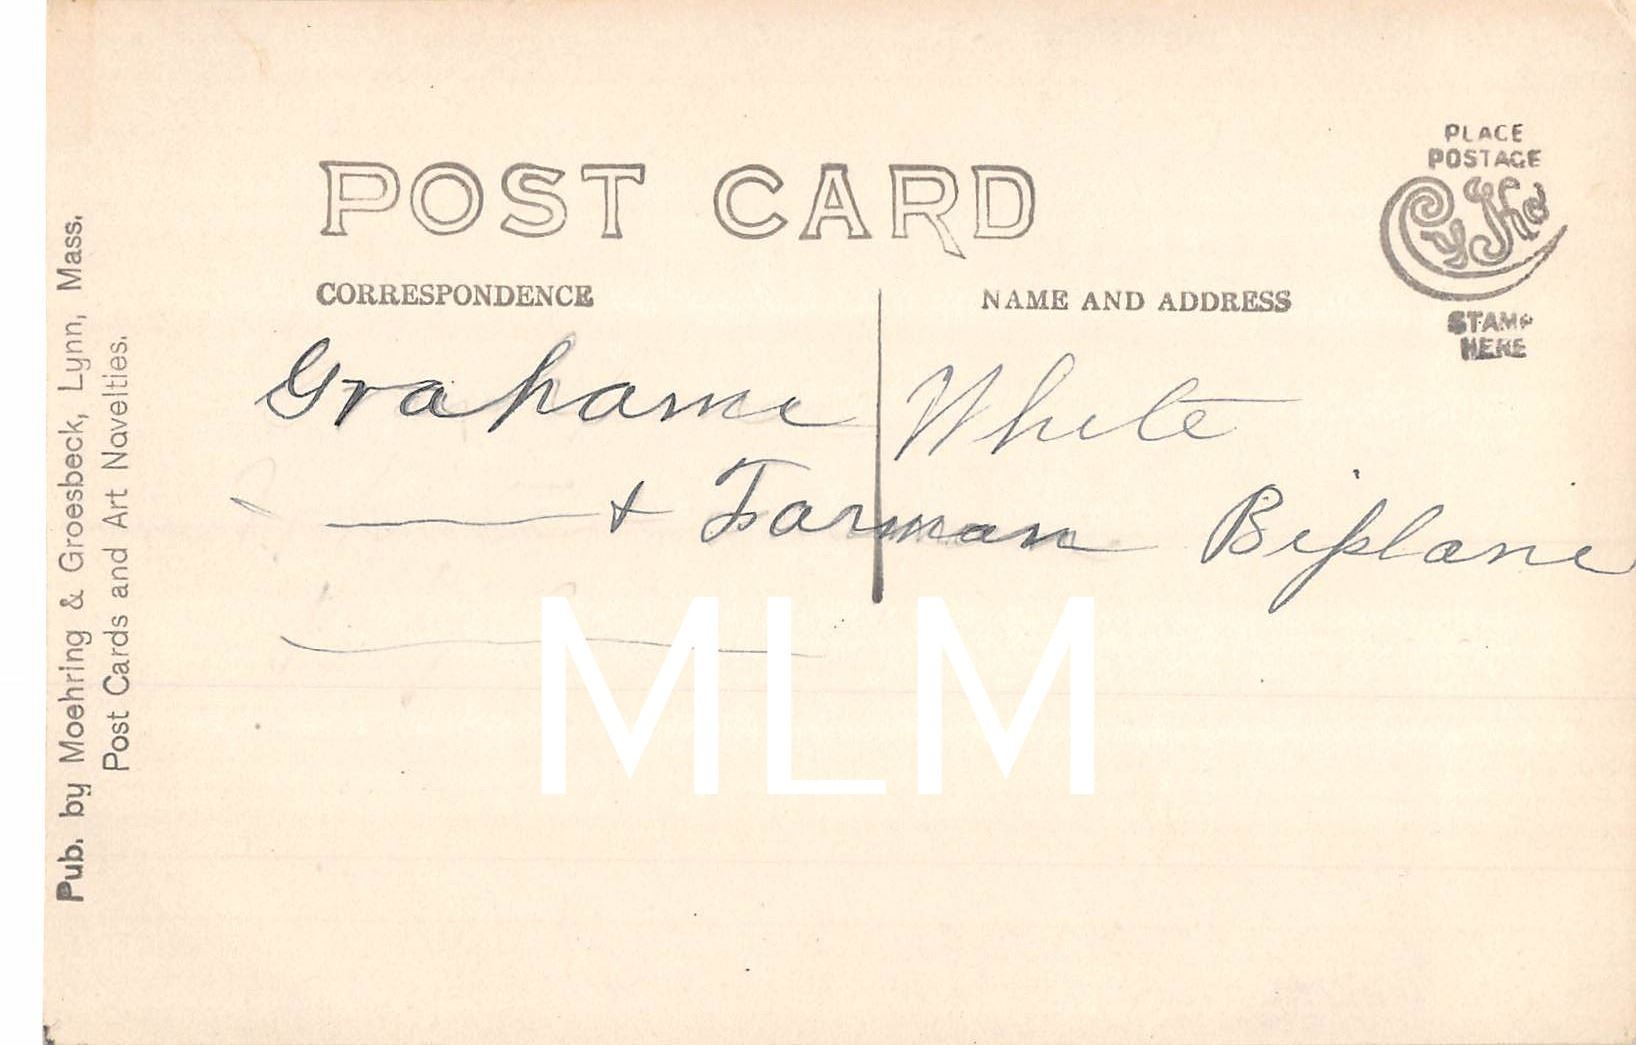 POST CARD
PLACE
POSTAGE
CyKo
STAMP
HERE
CORRESPONDENCE
NAME AND ADDRESS
Grahame White
+ Farman Biplane
MLM
Pub. by Moehring & Groesbeck, Lynn, Mass.
Post Cards and Art Navelties.